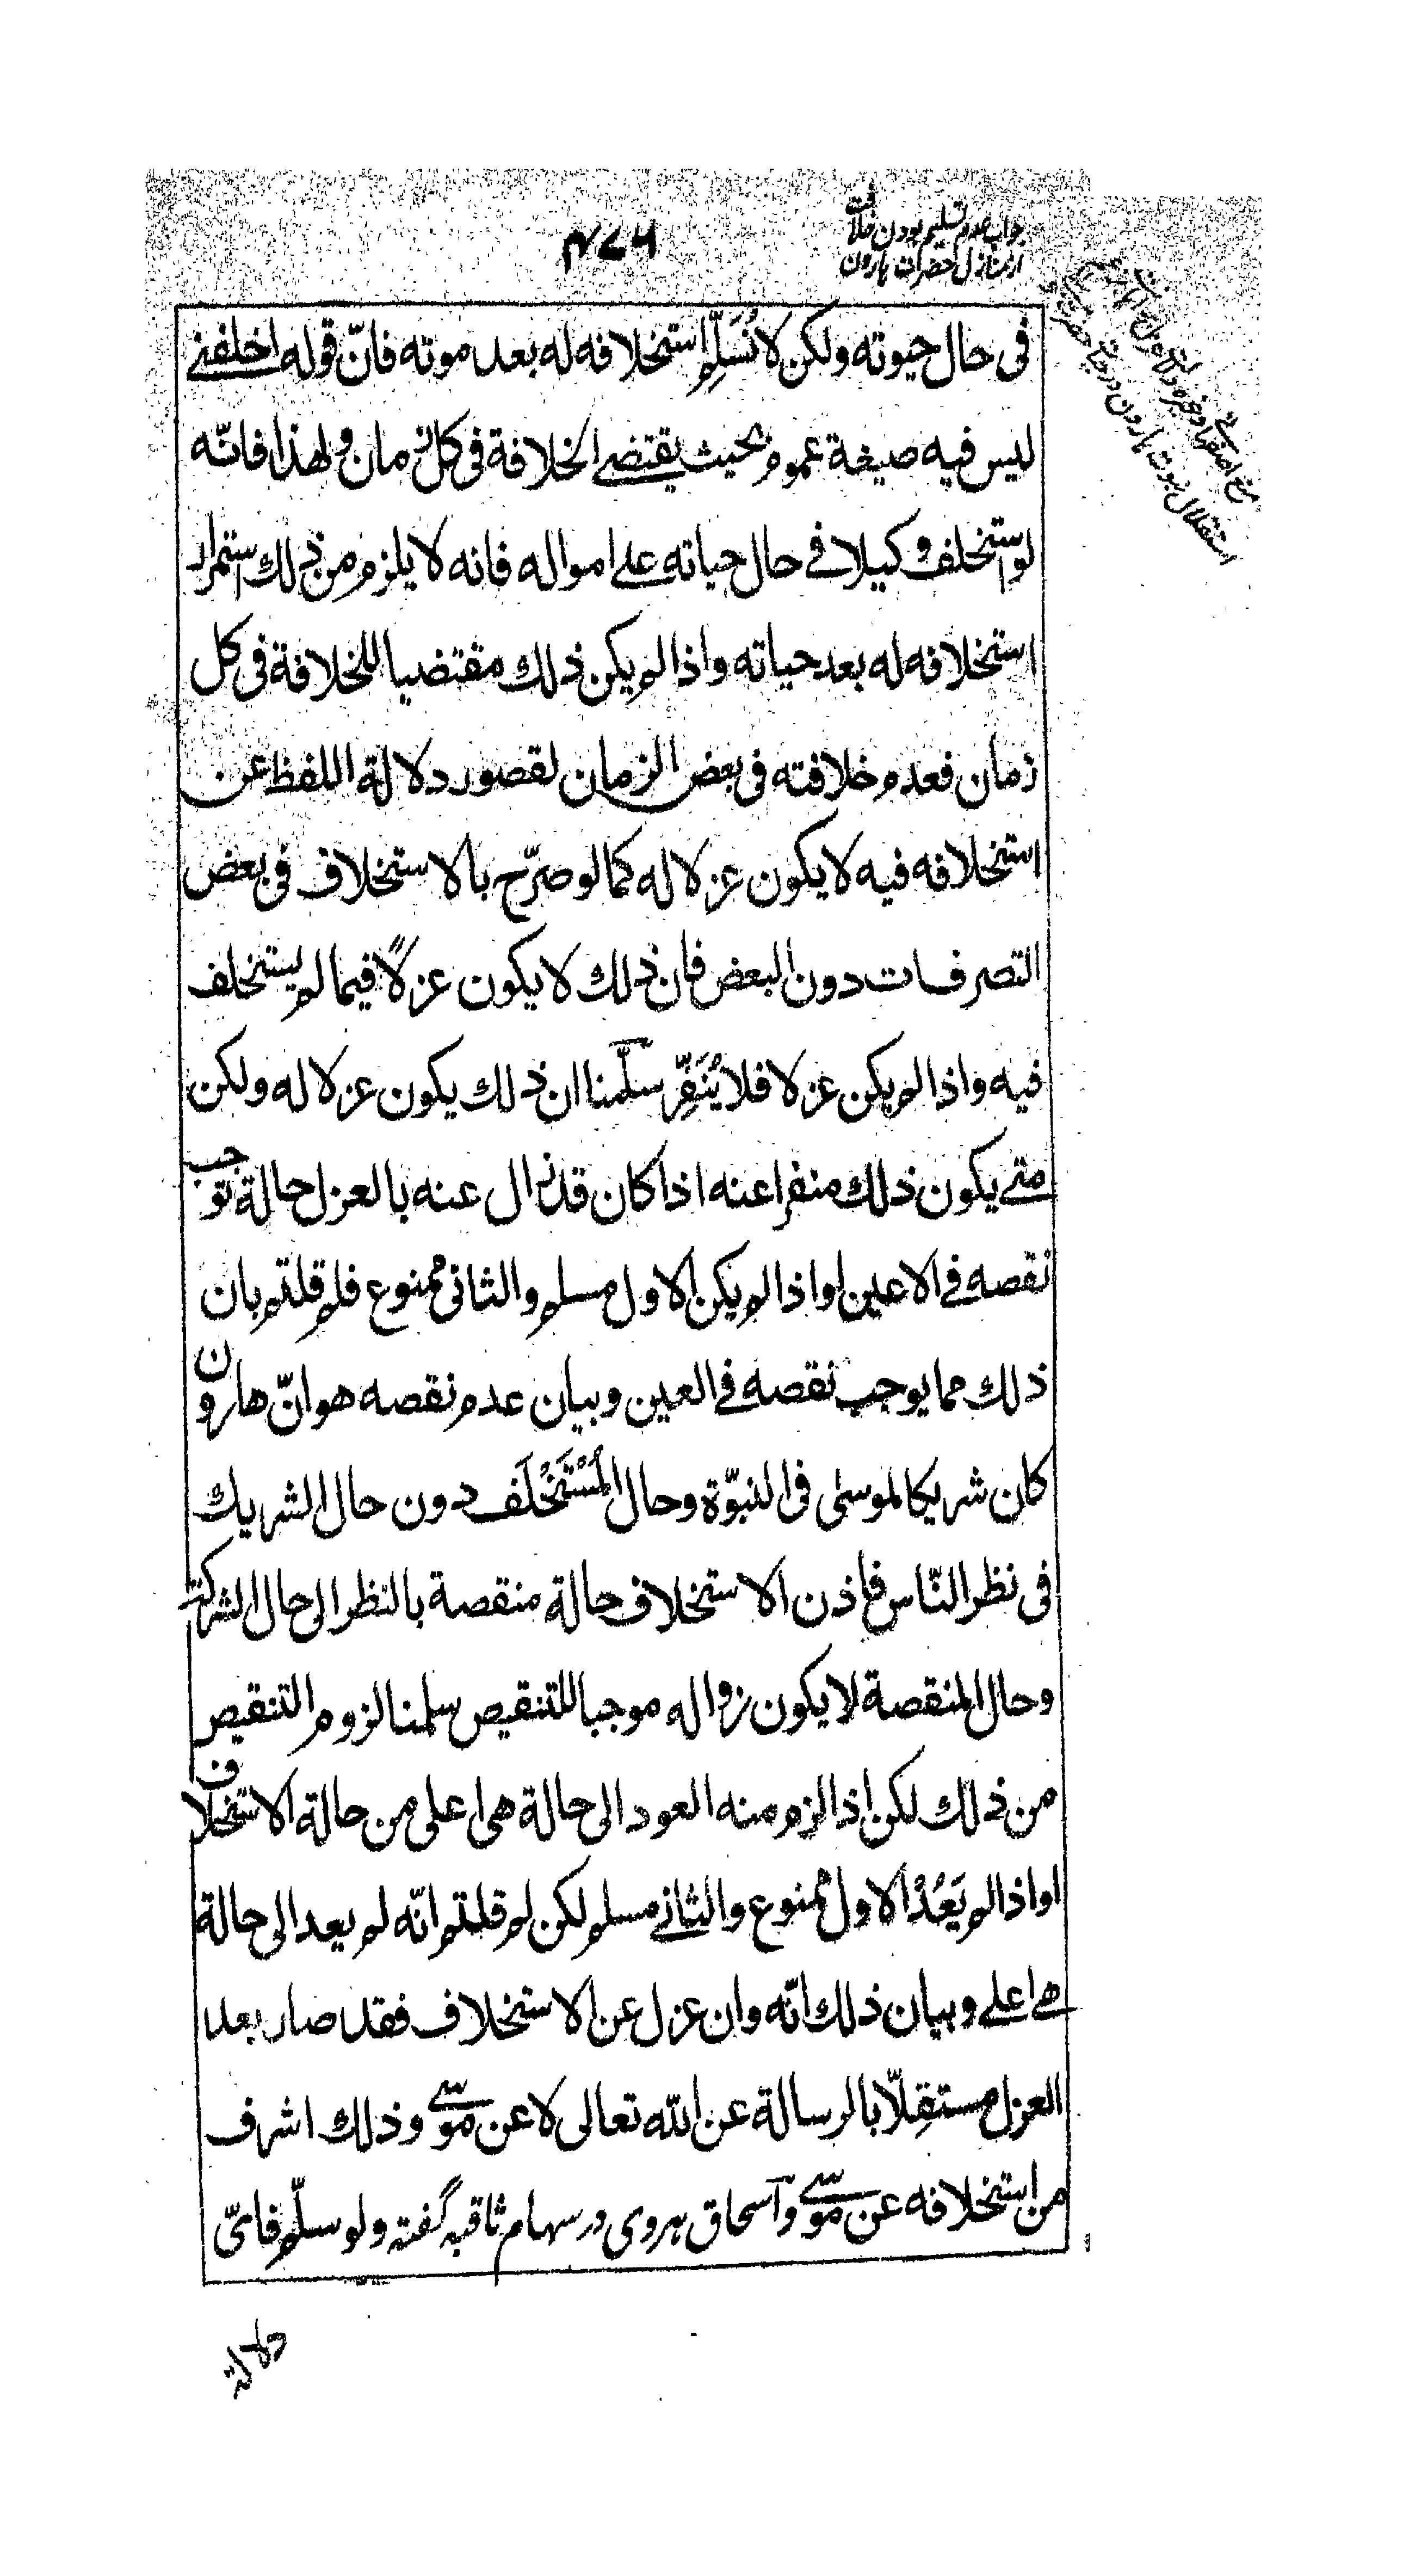 جواب عدم تسلیم بودن خلافت
از منازل حضرت هارون
۴۷۶
فی حال حیوته ولکن لا نُسَلِّم استخلافه له بعد موته فانّ قوله اخلفنے
لیس فیه صیغة عموم بحیث یقتضے الخلافة فی کل زمان ولهذا فانّه
لو استخلف وکیلا فے حال حیاته علے امواله فانه لا یلزم من ذلك استمرار
استخلافه له بعد حیاته واذا لم یکن ذلك مقتضیا للخلافة فی کل
زمان فعدم خلافته فی بعض الزمان لقصور دلالة اللفظ عن
استخلافه فیه لا یکون عزلا له کما لو صرّح بالاستخلاف فی بعض
التصرفات دون البعض فان ذلك لا یکون عزلًا فیما لم یستخلف
فیه واذا لم یکن عزلا فلا یُنَفِّر سلّمنا ان ذلك یکون عزلا له ولکن
متے یکون ذلك منفرا عنه اذا کان قد زال عنه بالعزل حالة توجب
نقصه فے الاعین او اذا لم یکن الاول مسلم والثانی ممنوع فلم قلتم بان
ذلك مما یوجب نقصه فے العین وبیان عدم نقصه هو انّ هارون
کان شریکا لموسٰی فی النبوّة وحال المُسْتَخْلَف دون حال الشریك
فی نظر النّاس فاذن الاستخلاف حالة منقصة بالنظر الی حال الشرکة
وحال المنقصة لا یکون زواله موجبا للتنقیص سلمنا لزوم التنقیص
من ذلك لکن اذا لزم منه العود الی حالة هی اعلی من حالة الاستخلاف
او اذا لم یَعُدْ الاول ممنوع والثانے مسلم لکن لم قلتم انّه لم یعد الی حالة
هے اعلے وبیان ذلك انّه وان عزل عن الاستخلاف فقد صار بعد
العزل مستقِلّا بالرسالة عن الله تعالی لا عن موسٰے وذلك اشرف
من استخلافه عن موسٰے وآسحاق هروی در سهام ثاقبه گفته ولو سلّم فایّ
دلالة